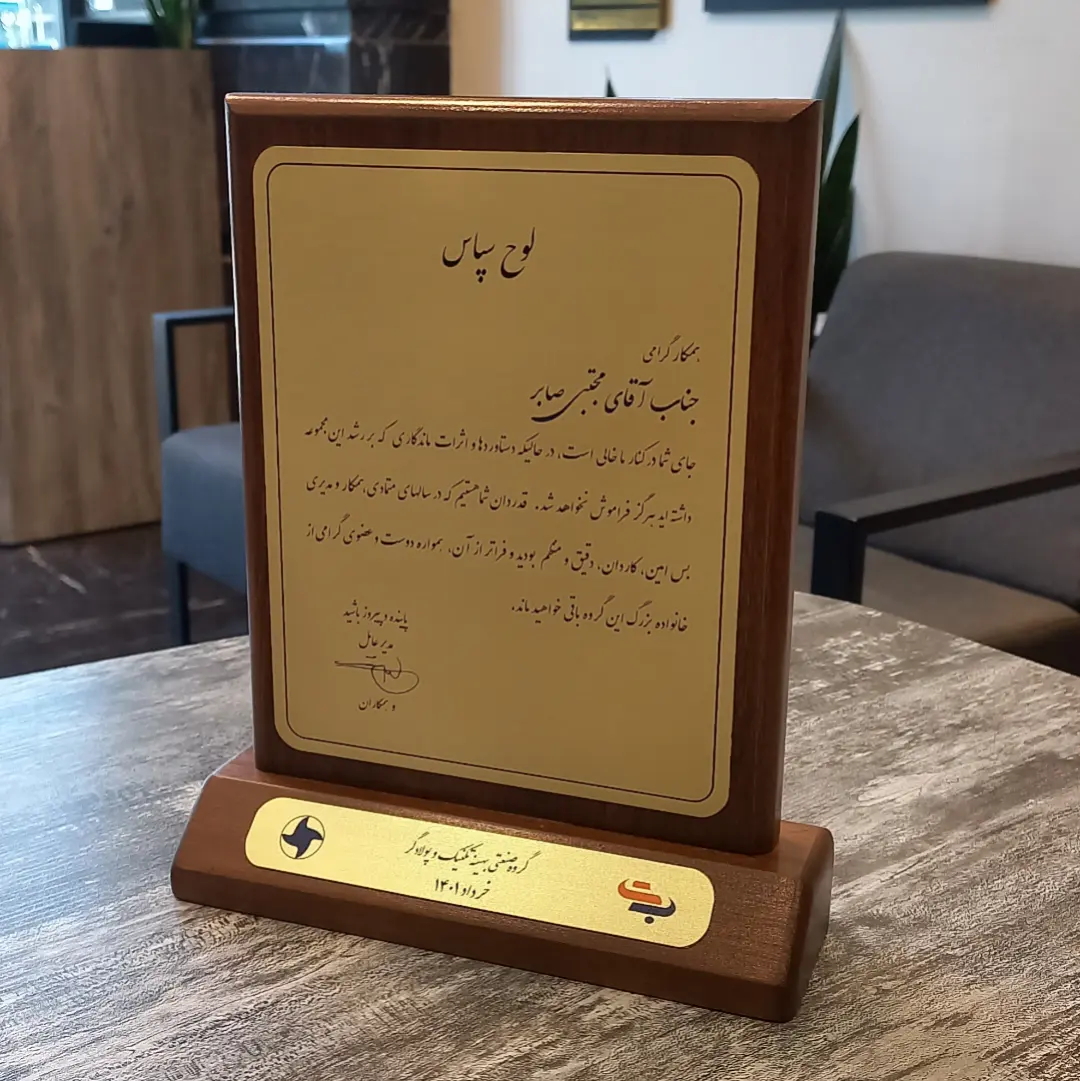 لوح سپاس
همکار گرامی
جناب آقای مجتبی صابر
جای شما در کنار ما خالی است، در حالیکه دستاوردها و اثرات ماندگاری که بر رشد این مجموعه
داشته اید هرگز فراموش نخواهد شد. قدردان شما هستیم که در سالهای متمادی، همکار و مدیری
بس امین، کاردان، دقیق و منظم بودید و فراتر از آن، همواره دوست و عضوی گرامی از
خانواده بزرگ این گروه باقی خواهید ماند.
پاینده و پیروز باشید
مدیر عامل
و همکاران
گروه صنعتی بهینه تکنیک و پولادگر
خرداد ۱۴۰۱